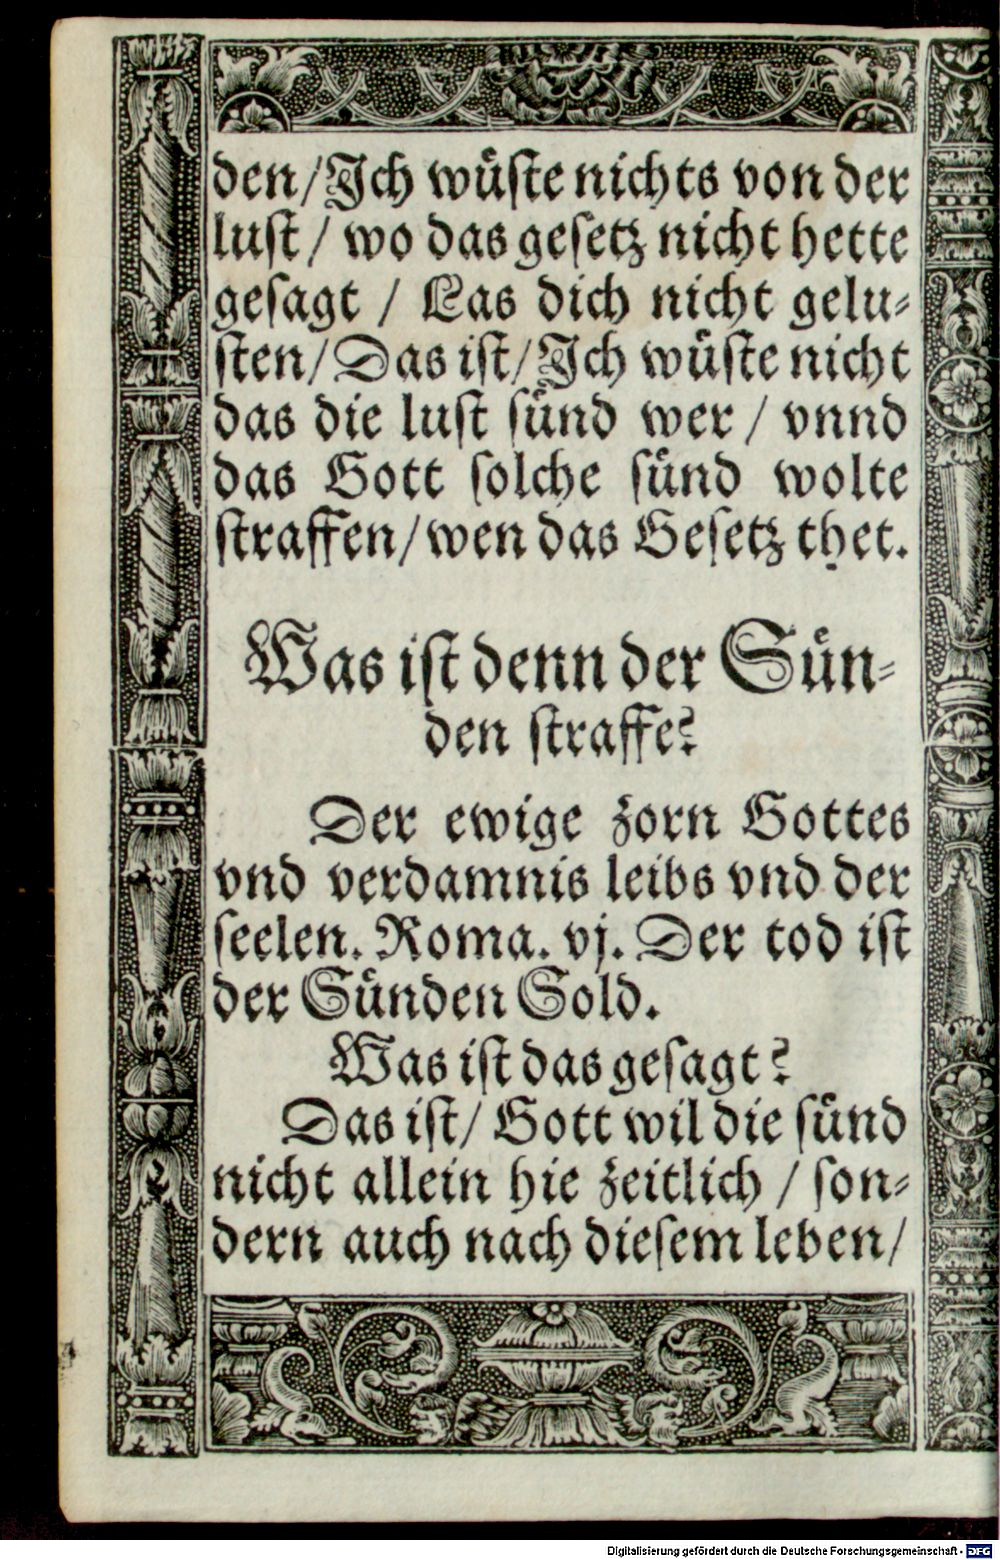 den/Ich wüste nichts von der
lust / wo das gesetz nicht hette
gesagt / Las dich nicht gelu⸗
sten/Das ist/Ich wüste nicht
das die lust sünd wer / vnnd
das Gott solche sünd wolte
straffen/wen das Gesetz thet.
Was ist denn der Sün⸗
den straffe?
Der ewige zorn Gottes
vnd verdamnis leibs vnd der
seelen. Roma. vj. Der tod ist
der Sünden Sold.
Was ist das gesagt?
Das ist/ Gott wil die sünd
nicht allein hie zeitlich / son⸗
dern auch nach diesem leben/
Digitalisierung gefördert durch die Deutsche Forschungsgemeinschaft - DFG